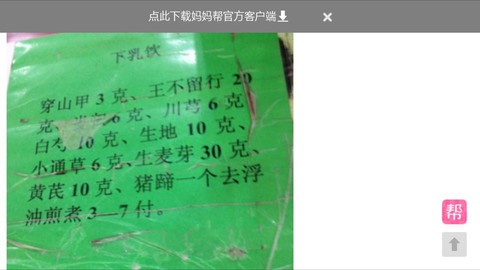 点此下载妈妈帮官方客户端
下乳饮
穿山甲 3 克、王不留行 20
克、 6 克、川芎 6 克
白芍 10 克、生地 10 克、
小通草 6 克、生麦芽 30 克、
黄芪 10 克、猪蹄一个去浮
油煎煮 3—7 付。
帮